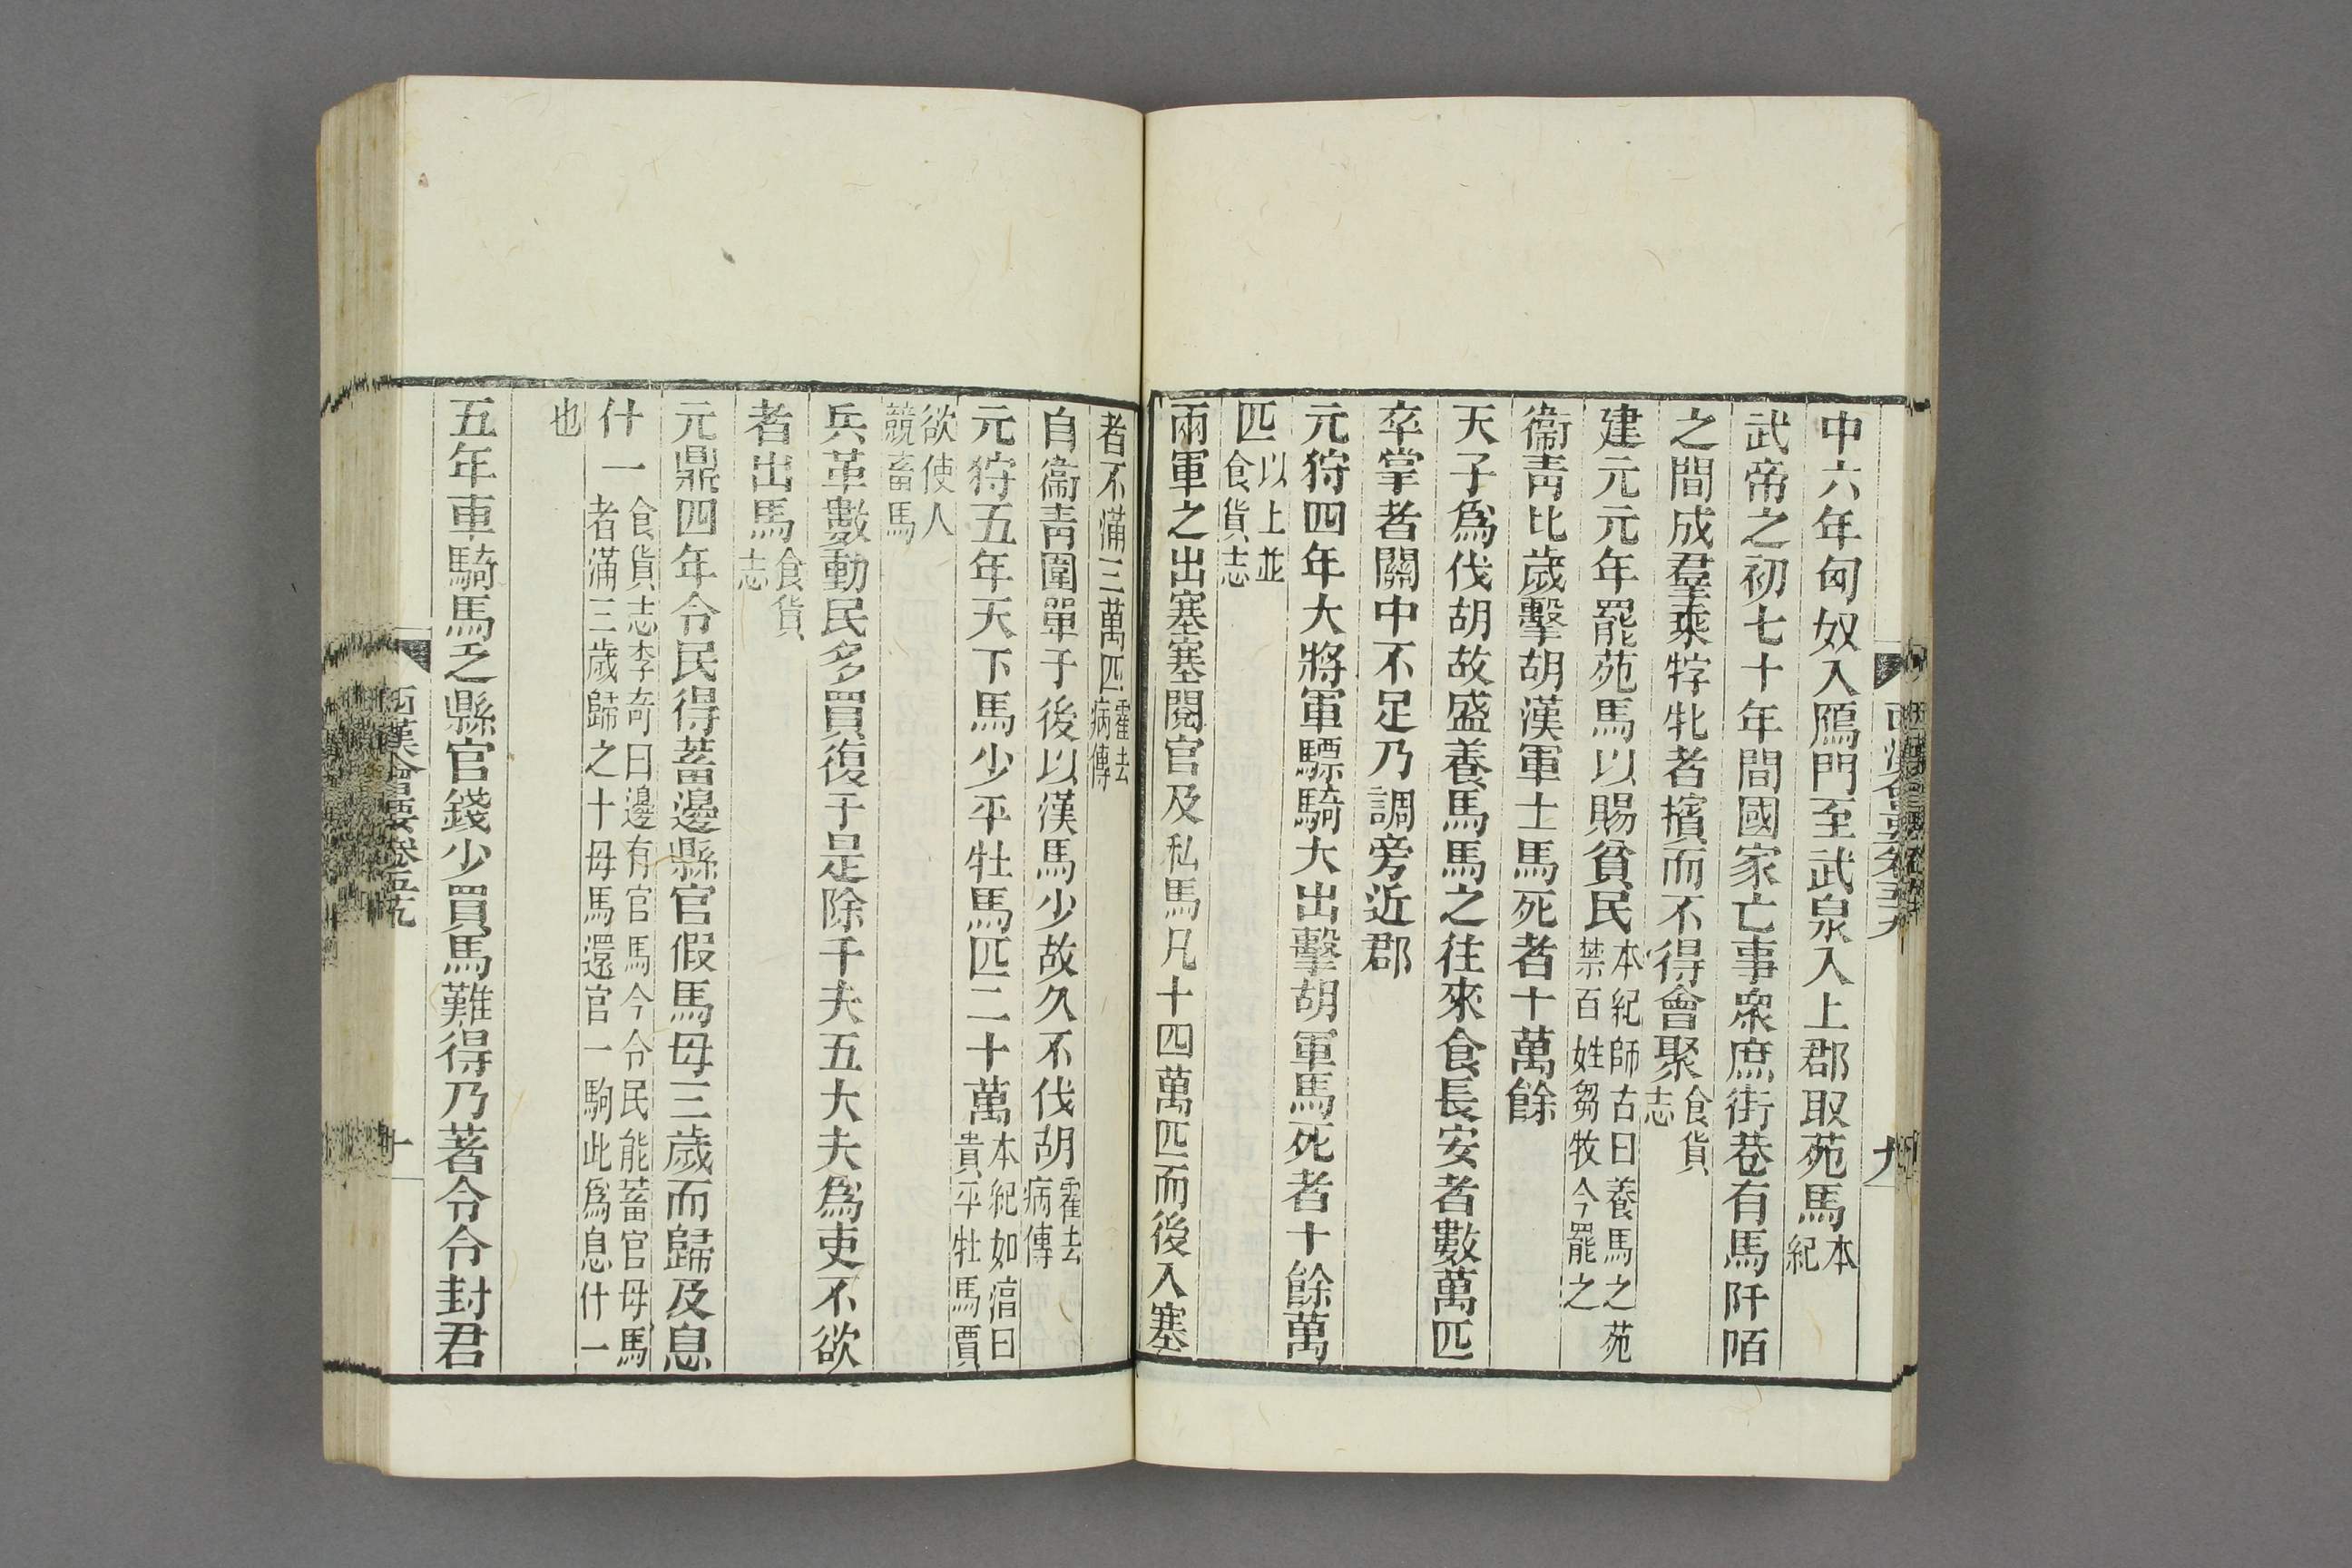 中六年匈奴入鴈門至武泉入上郡取苑馬本紀
武帝之初七十年間國家亡事衆庶街巷有馬阡陌
之間成羣乘牸牝者擯而不得會聚食貨志
建元元年罷苑馬以賜貧民本紀師古曰養馬之苑禁百姓芻牧今罷之
衞靑比歲擊胡漢軍士馬死者十萬餘
天子爲伐胡故盛養馬馬之往來食長安者數萬匹
卒掌者關中不足乃調旁近郡
元狩四年大將軍驃騎大出擊胡軍馬死者十餘萬
匹以上並食貨志
兩軍之出塞塞閱官及私馬凡十四萬匹而後入塞
者不滿三萬匹霍去病傳
自衞靑圍單于後以漢馬少故久不伐胡霍去病傳
元狩五年天下馬少平牡馬匹二十萬本紀如湻曰貴平牡馬賈
欲使人競畜馬
兵革數動民多買復于是除千夫五大夫爲吏不欲
者出馬食貨志
元鼎四年令民得蓄邊縣官假馬母三歲而歸及息
什一食貨志李奇曰邊有官馬今令民能蓄官母馬者滿三歲歸之十母馬還官一駒此爲息什一
也
五年車騎馬乏縣官錢少買馬難得乃著令令封君
西漢會要卷五
十